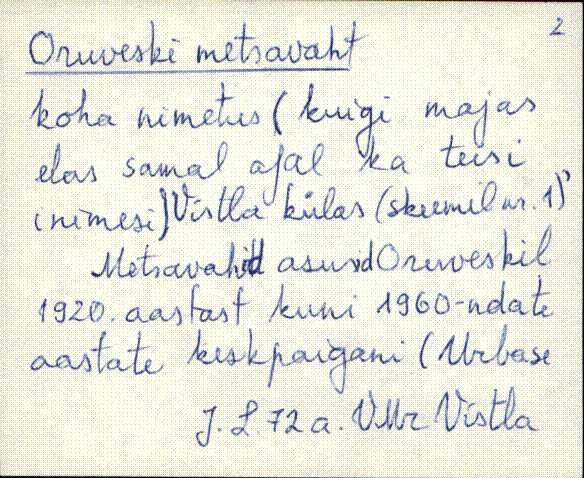 2
Oruveski metsavaht
koha nimetus (kuigi majas
elas samal ajal ka teisi
inimesi) Vistla külas (skeemil nr. 1)
Metsavahid asusid Oruveskil
1920. aastast kuni 1960-ndate
aastate keskpaigani (Urbase
J. L. 72 a. VMr Vistla